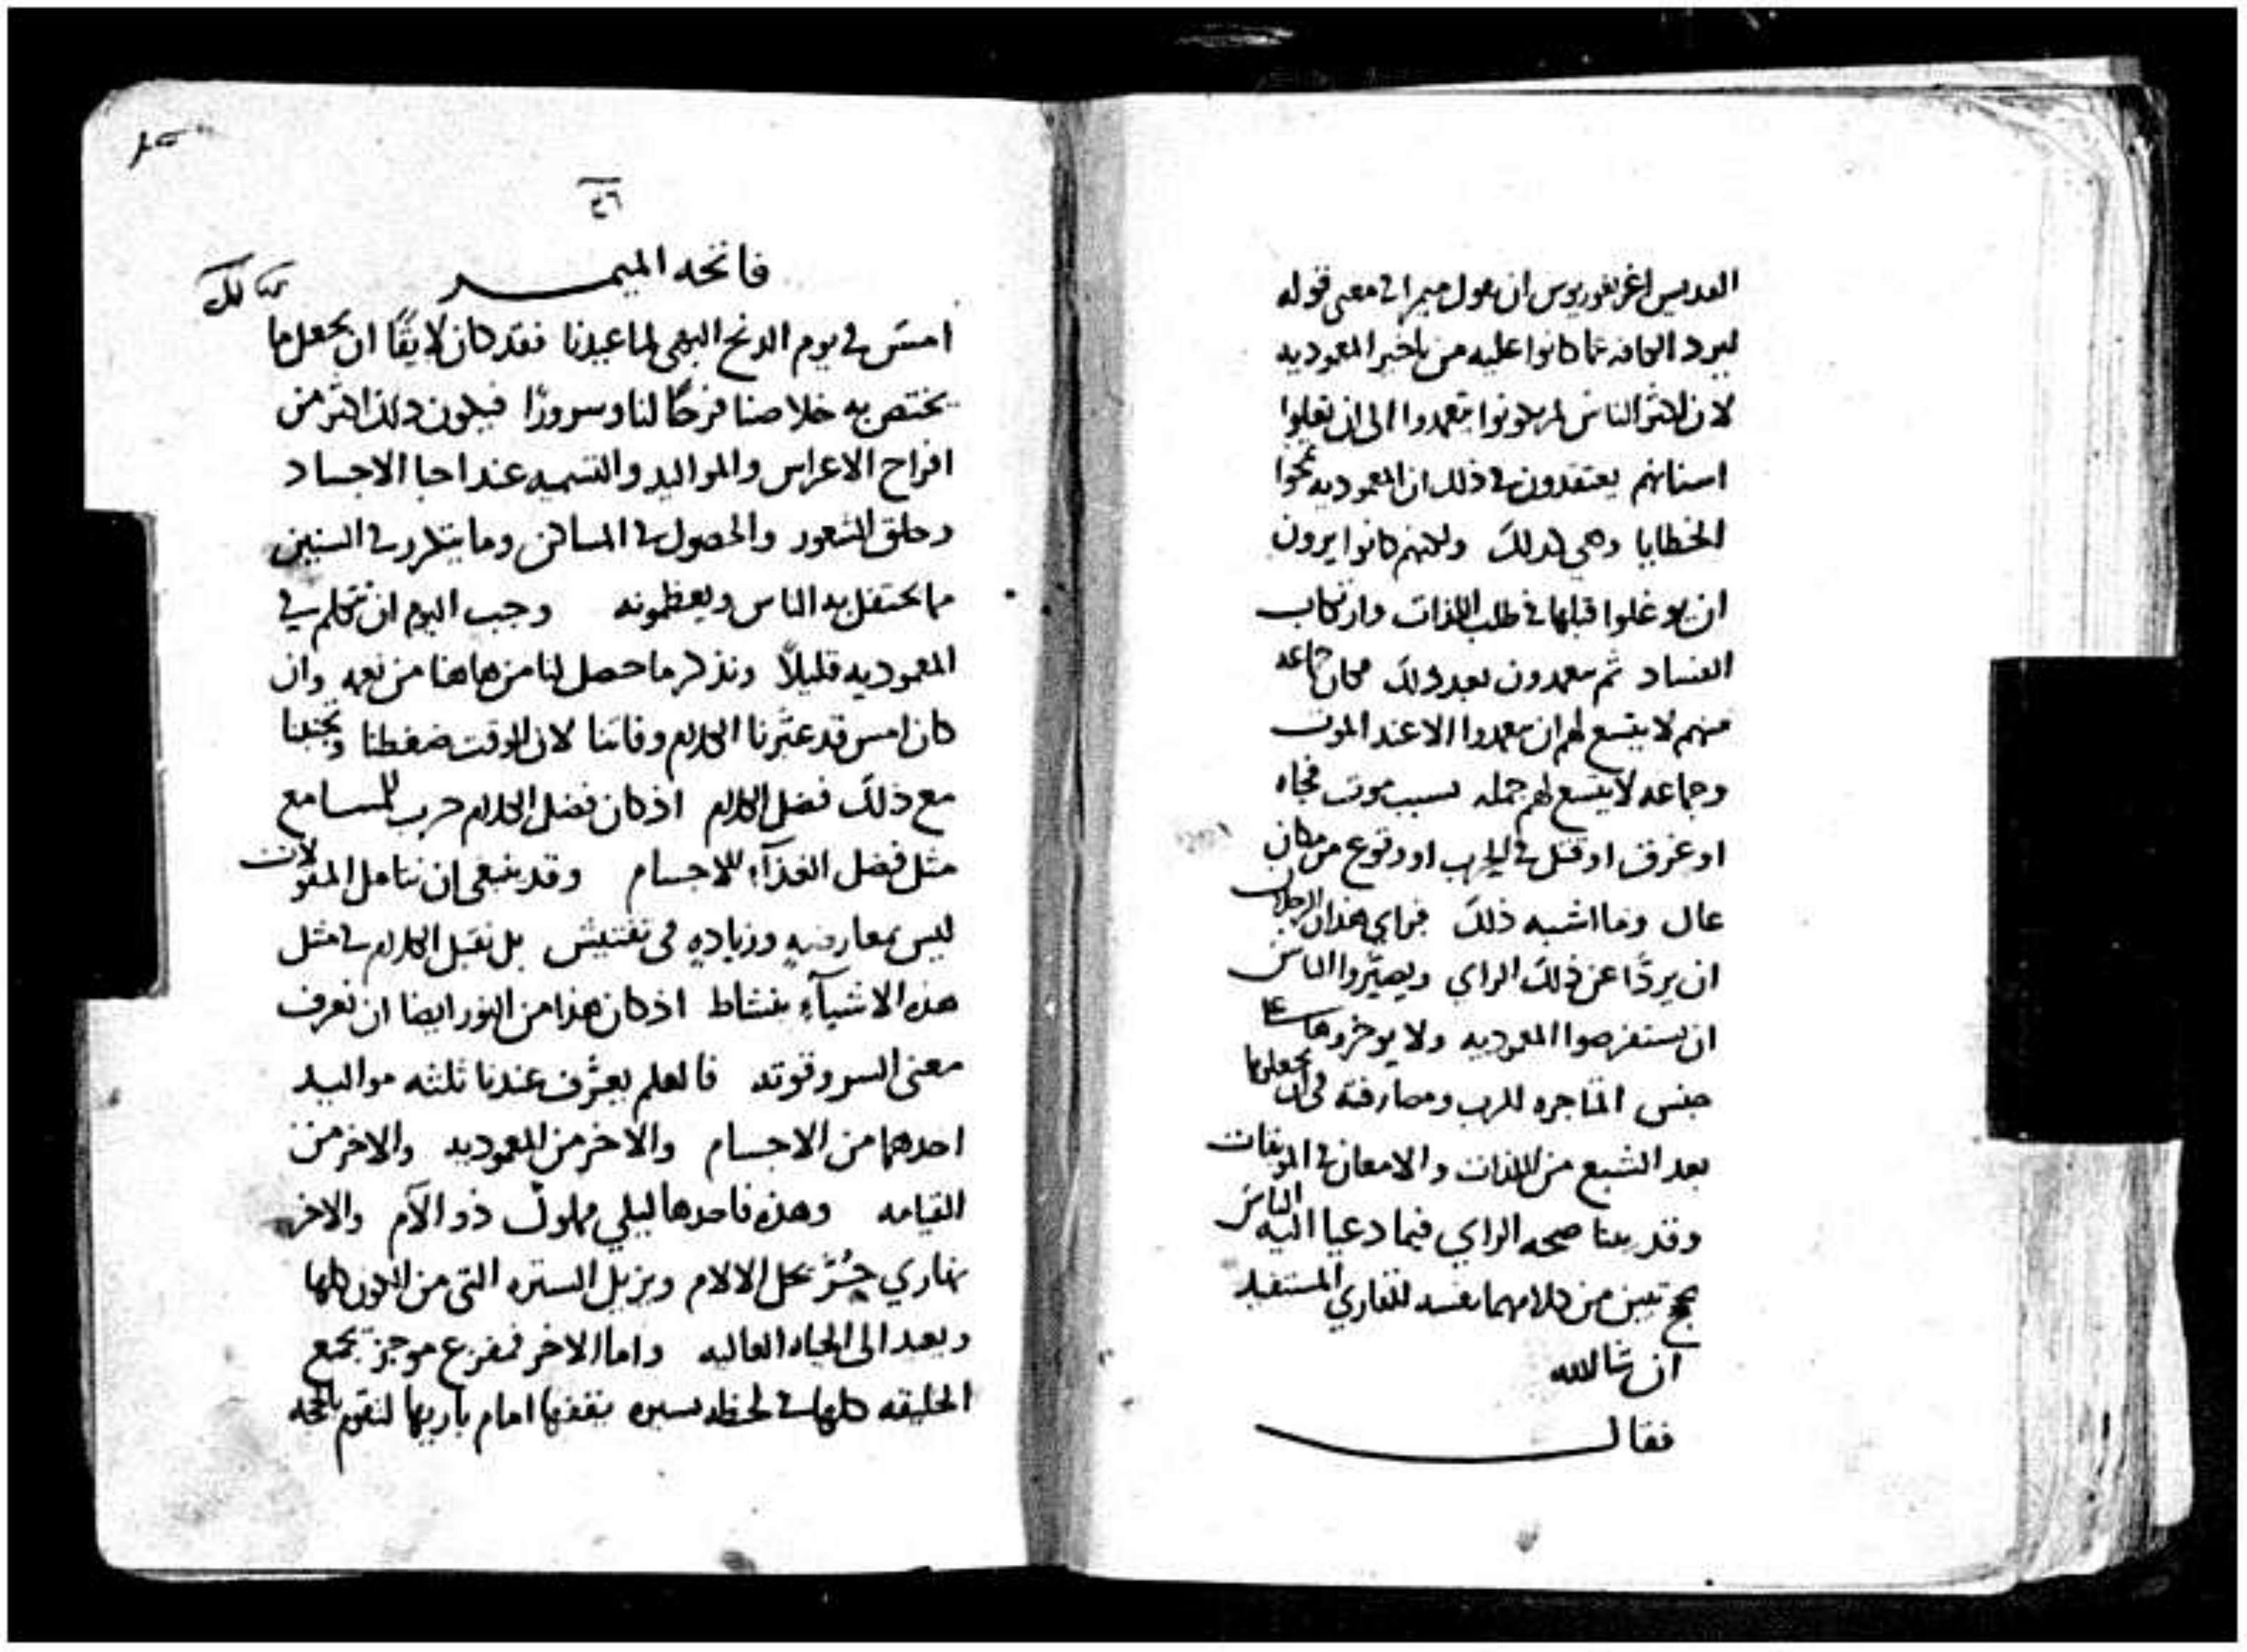 القديس اغريغوريوس ان يقول ميمرا في معنى قوله
ليرد الكافه عما كانوا عليه من تاخير المعموديه
لان اكثر الناس لم يكونوا يتعمدوا الى ان تعلوا
اسنانهم يعتقدون في ذلك ان المعموديه تمحوا
الخطايا وهي كذلك ولكنهم كانوا يرون
ان يوغلوا قبلها في طلب اللذات وارتكاب
الفساد ثم يتعمدون بعد ذلك فكان جماعه
منهم لا يتسع لهم ان يتعمدوا الا عند الموت
وجماعه لا يتسع لهم جمله بسبب موت فجاه
او غرق او قتل في الحرب او وقوع من مكان
عال وما اشبه ذلك فراي هذان الرجلان
ان يردا عن ذلك الراي ويصيروا الناس
ان يستفرصوا المعموديه ولا يوخروها على
جنس المتاجره للرب ومصارفته في ان يجعلها
بعد الشبع من اللذات والامعان في الموبقات
وقد بينا صحه الراي فيما دعيا اليه الناس
بحجج تبين من كلامهما نفسه للقاري المستفيد
ان شا الله
فقال
٤٦
فاتحه الميمر
امس في يوم الدنح البهي لما عيدنا فقد كان لايقا ان يجعل ما
يختص به خلاصنا فرحا لنا وسرورا فيكون ذلك اكثر من
افراح الاعراس والمواليد والتسميه عند احبا الاجساد
وحلق الشعور والحصول في المساكن وما يتكرر في السنين
مما يحتفل به الناس ويعظمونه وجب اليوم ان نتكلم في
المعموديه قليلا ونذكر ما حصل لنا من هاهنا من نعمه وان
كان امس قد عثرنا الكلام وفاتنا لان الوقت ضغطنا وتجنبنا
مع ذلك فضل الكلام اذ كان فضل الكلام حرب للمسامع
مثل فضل الغذآء للاجسام وقد ينبغي ان نتامل المقولات
ليس بمعارضه وزياده في تفتيش بل نقبل الكلام في مثل
هذه الاشيآء بنشاط اذ كان هذا من النور ايضا ان نعرف
معنى السر وقوته فالعلم يعرف عندنا ثلثه مواليد
احدهما من الاجسام والاخر من المعموديه والاخر من
القيامه وهذه فاحدها ليلي مملوك ذو الآم والاخر
نهاري حر يحل الالام ويزيل الستره التي من الكون كلها
ويعد الى الحياه العاليه واما الاخر فمفزع موجز يجمع
الخليقه كلها في لحظه يسيره يقفها امام باريها لتقوم